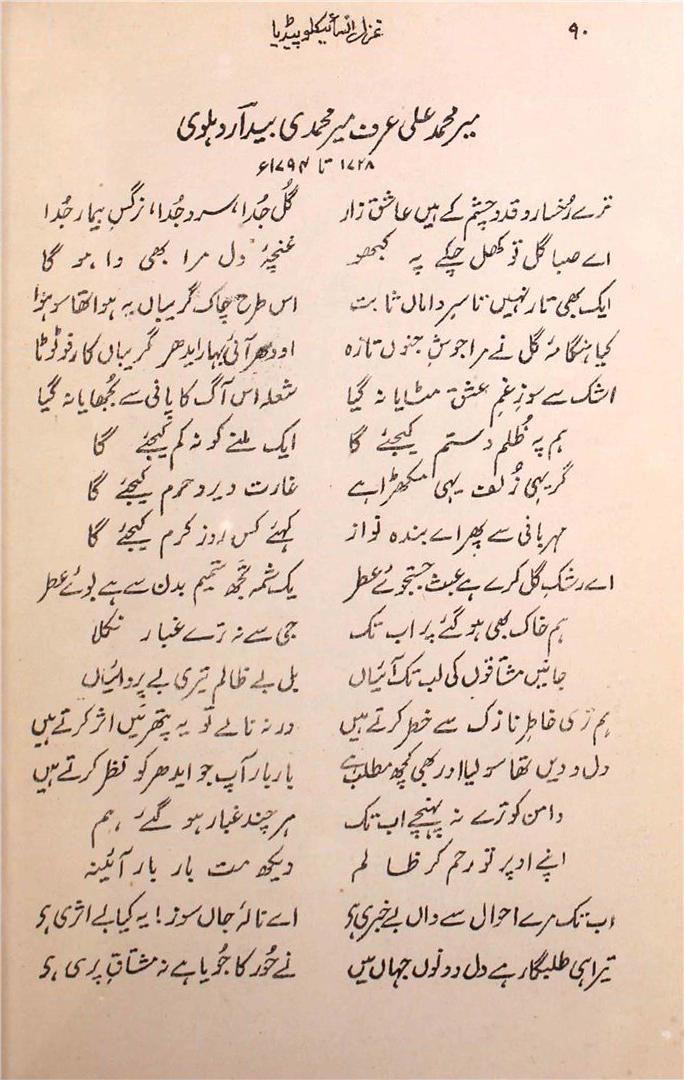 ۹۰ غزل انسائیکلوپیڈیا
میر محمد علی عرف میر محمدی بیدآر دہلوی
۱۷۲۸ تا ۱۷۹۴ء
ترے رُخسار و قد و چشم کے ہیں عاشق زار گُل جُدا، سرو جُدا، نرگسِ بیمار جُدا
اے صبا گل تو کھل چکے پہ کبھو غنچۂ دل مرا بھی وا ہو گا
ایک بھی تار نہیں تا سرِ داماں ثابت اس طرح چاک گریباں نہ ہوا تھا سو ہوا
کیا ہنگامۂ گل نے مرا جوشِ جنوں تازہ اودھر آئی بہار ایدھر گریباں کا رفو ٹوٹا
اشک سے سوزِ غمِ عشق مٹایا نہ گیا شعلہ اس آگ کا پانی سے بُجھایا نہ گیا
ہم پہ ظُلم و ستم کیجئے گا ایک ملنے کو نہ کم کیجئے گا
گر یہی زُلف یہی مکھڑا ہے غارت دیر و حرم کیجئے گا
مہربانی سے پھر اے بندہ نواز کہئے کس روز کرم کیجئے گا
اے رشک گل کرے ہے عبث جستجوئے عطر یک شمہ تُجھ شمیم بدن سے ہے بوئے عطر
ہم خاک بھی ہو گئے پر اب تک جی سے نہ ترے غبار نکلا
جانیں مشتاقوں کی لب تک آئیاں بل بے ظالم تیری بے پروائیاں
ہم تری خاطرِ نازک سے خطر کرتے ہیں ورنہ نالے تو یہ پتھر میں اثر کرتے ہیں
دل و دیں تھا سو لیا اور بھی کچھ مطلب ہے بار بار آپ جو ایدھر کو نظر کرتے ہیں
دامن کو ترے نہ پہنچے اب تک ہر چند غبار ہو گئے ہم
اپنے اوپر تو رحم کر ظالم دیکھ مت بار بار آئینہ
اب تک مرے احوال سے واں بے خبری ہے اے نالۂ جاں سوز! یہ کیا بے اثری ہے
تیرا ہی طلبگار ہے دل دونوں جہاں میں نے حُور کا جُویا ہے نہ مشتاقِ پری ہے